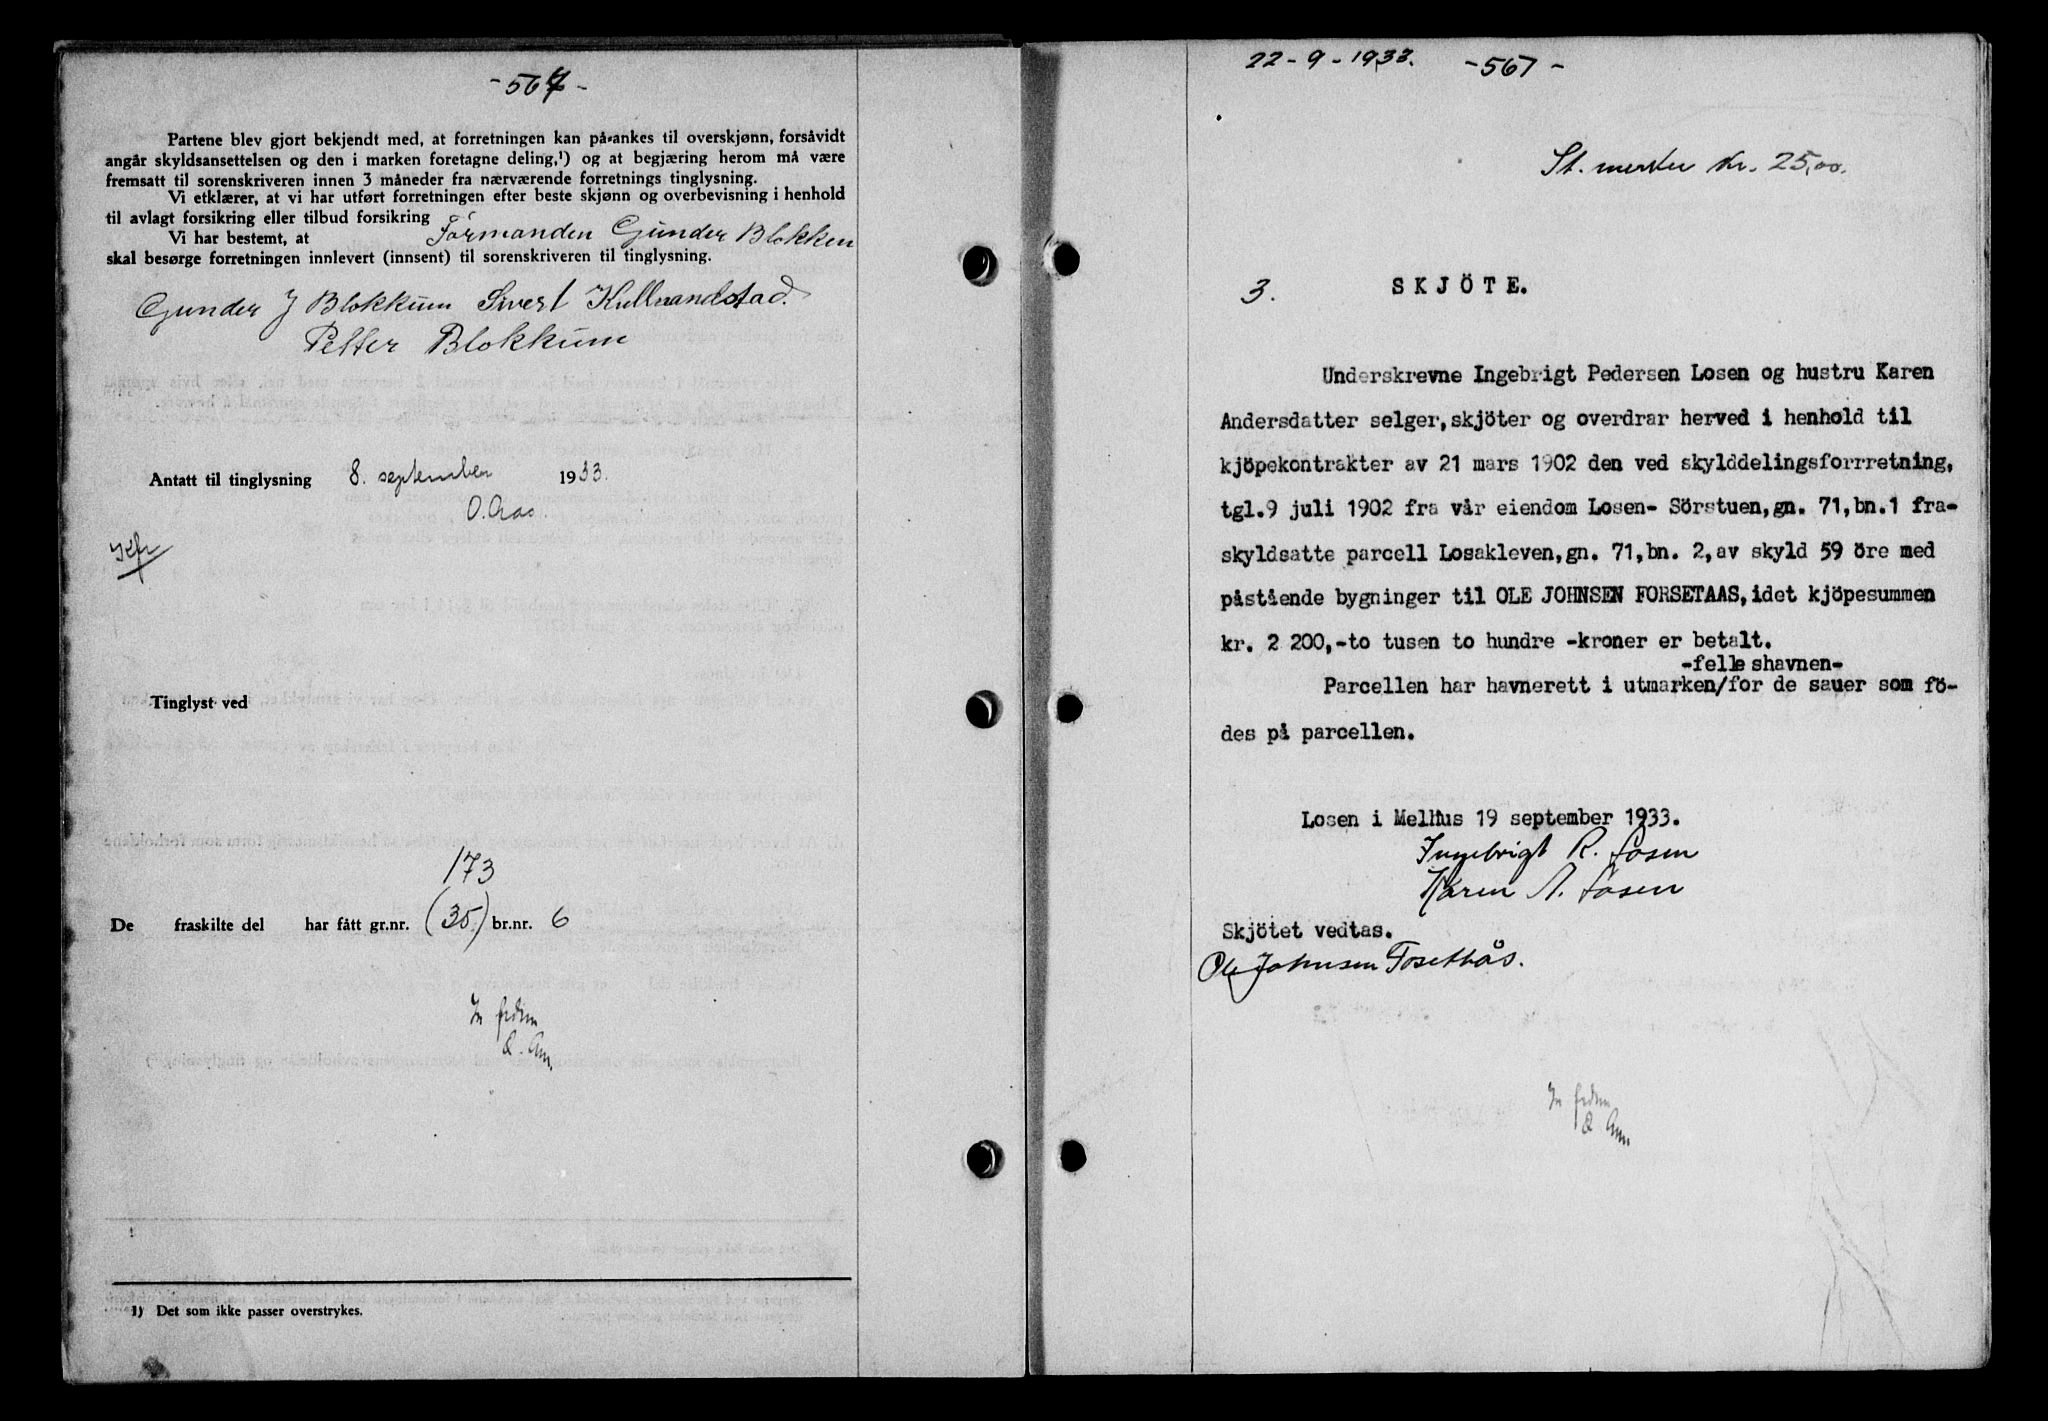 -567-
Partene blev gjort bekjendt med, at forretningen kan på-ankes til overskjønn, forsåvidt
angår skyldsansettelsen og den i marken foretagne deling,¹) og at begjæring herom må være
fremsatt til sorenskriveren innen 3 måneder fra nærværende forretnings tinglysning.
Vi etklærer, at vi har utført forretningen efter beste skjønn og overbevisning i henhold
til avlagt forsikring eller tilbud forsikring
Vi har bestemt, at Formanden Gunder Blokken
skal besørge forretningen innlevert (innsent) til sorenskriveren til tinglysning.
Gunder J Blokkum Sivert
Petter Blokkum
Antatt til tinglysning 8. september 1933.
O. Aas.
Kfr
Tinglyst ved
173
De fraskilte del har fått gr.nr. (35.) br.nr. 6
1) Det som ikke passer overstrykes.
22-9-1933. -567-
St. merker kr. 25,00.
3. SKJÖTE.
Underskrevne Ingebrigt Pedersen Losen og hustru Karen
Andersdatter selger, skjöter og overdrar herved i henhold til
kjöpekontrakter av 21 mars 1902 den ved skylddelingsforrretning,
tgl.9 juli 1902 fra vår eiendom Losen- Sörstuen,gn. 71,bn.1 fra-
skyldsatte parcell Losakleven,gn. 71,bn. 2,av skyld 59 öre med
påstående bygninger til OLE JOHNSEN FORSETAAS,idet kjöpesummen
kr. 2 200,-to tusen to hundre -kroner er betalt.
-felleshavnen-
Parcellen har havnerett i utmarken/for de sauer som fö-
des på parcellen.
Losen i Melhus 19 september 1933.
Ingebrigt R. Losen
Karen A. Losen
Skjötet vedtas.
Ole Johnsen Fosethås.